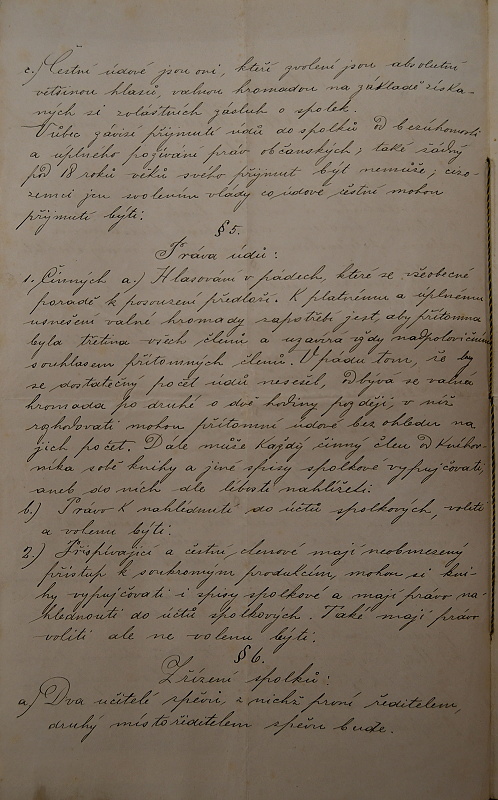 c.) Čestní údové jsou oni, kteří zvoleni jsou absolutní
většinou hlasů, valnou hromadou na základě získa-
ných si zvláštních zásluh o spolek.
Vůbec závisí přijmutí údů do spolků od bezúhonosti
a úplného požívání práv občanských; také žádný
pod 18 roků věků svého přijmut být nemůže; cizo-
zemci jen svolením vlády co údové čestní mohou
přijmuti býti.
§ 5.
Práva údů:
1. Činných a.) Hlasování v pádech, které se všeobecné
poradě k posouzení předloží. K platnému a úplnému
usnešení valné hromady zapotřebí jest, aby přítomna
byla třetina všech členů a uzavírá vždy nadpolovičním
souhlasem přítomných členů. V pádu tom, že by
se dostatečný počet údů nesešel, odbývá se valná
hromada po druhé o dvě hodiny později, v níž
rozhodovati mohou přítomní údové bez ohledu na
jich počet. Dále může každý činný člen od knihov-
níka sobě knihy a jiné spisy spolkové vypujčovati,
aneb do nich dle libosti nahlížeti.
b.) Právo k nahlédnutí do účtů spolkových, voliti
a volenu býti.
2.) Přispívající a čestní členové mají neobmezený
přístup k soukromým produkcím, mohou si kni-
hy vypujčovati i spisy spolkové a mají právo na-
hlednouti do účtů spolkových. Také mají právo
voliti ale ne volenu býti.
§ 6.
Zřízení spolků:
a) Dva učitelé zpěvu, z nichž první ředitelem,
druhý místoředitelem zpěvu bude.